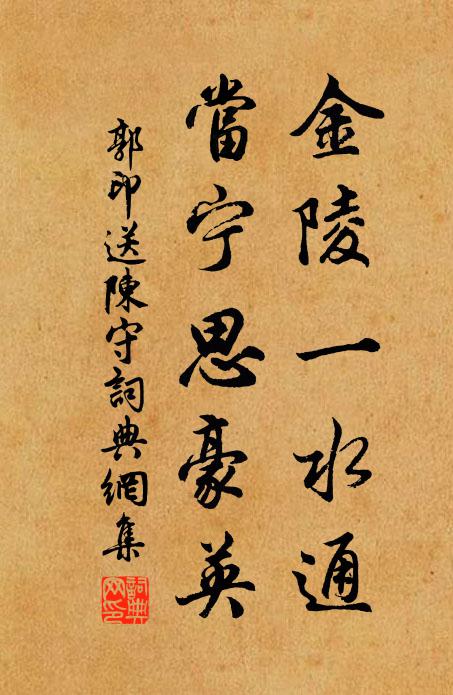 金陵一水通
當宁思豪英
郭印送陳守詞典網集
詞典
网印